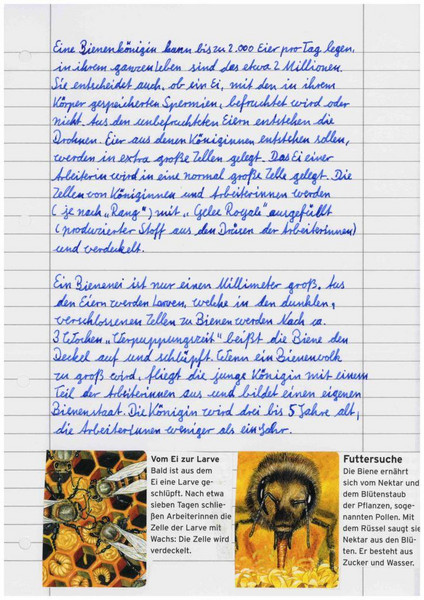 Eine Bienenkönigin kann bis zu 2.000 Eier pro Tag legen,
in ihrem ganzen Leben sind das etwa 2 Millionen.
Sie entscheidet auch, ob ein Ei, mit den in ihrem
Körper gespeicherten Spermien, befruchtet wird oder
nicht. Aus den unbefruchteten Eiern entstehen die
Drohnen. Eier aus denen Königinnen entstehen sollen,
werden in extra große Zellen gelegt. Das Ei einer
Arbeiterin wird in eine normal große Zelle gelegt. Die
Zellen von Königinnen und Arbeiterinnen werden
(je nach „Rang“) mit „Gelee Royale“ ausgefüllt
(produzierter Stoff aus den Drüsen der Arbeiterinnen)
und verdeckelt.
Ein Bienenei ist nur einen Millimeter groß. Aus
den Eiern werden Larven, welche in den dunklen,
verschlossenen Zellen zu Bienen werden. Nach ca.
3 Wochen „Verpuppungszeit“ beißt die Biene den
Deckel auf und schlüpft. Wenn ein Bienenvolk
zu groß wird, fliegt die junge Königin mit einem
Teil der Arbeiterinnen aus und bildet einen eigenen
Bienenstaat. Die Königin wird drei bis 5 Jahre alt,
die Arbeiterinnen weniger als ein Jahr.
Vom Ei zur Larve
Bald ist aus dem
Ei eine Larve ge-
schlüpft. Nach etwa
sieben Tagen schlie-
ßen Arbeiterinnen die
Zelle der Larve mit
Wachs: Die Zelle wird
verdeckelt.
Futtersuche
Die Biene ernährt
sich vom Nektar und
dem Blütenstaub
der Pflanzen, soge-
nannten Pollen. Mit
dem Rüssel saugt sie
Nektar aus den Blü-
ten. Er besteht aus
Zucker und Wasser.